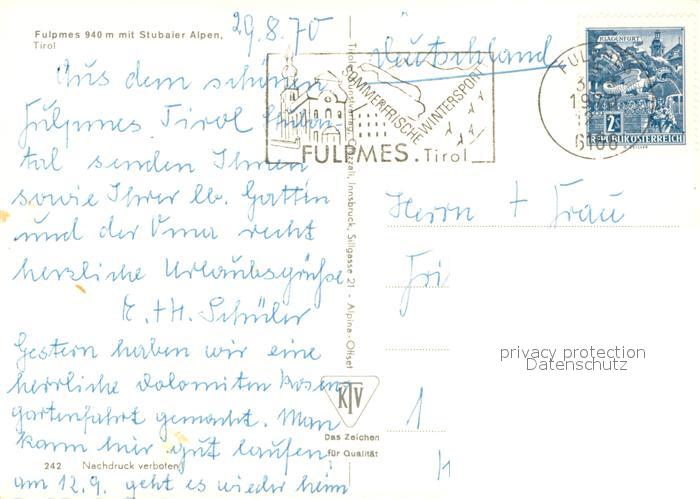 Fulpmes 940 m mit Stubaier Alpen,
Tirol
29.8.70
Aus dem schönen
Fulpmes Tirol Stubai-
tal senden Ihnen
sowie Ihrer lb. Gattin
und der Oma recht
herzliche Urlaubsgrüße
K. + H. Schüler
Gestern haben wir eine
herrliche Dolomiten Rosen
gartenfahrt gemacht. Man
kann hier gut laufen
am 12.9. geht es wieder heim
242 Nachdruck verboten
Innsbruck, Sillgasse 21 - Alpine-Offset
KTV
Das Zeichen
für Qualität
SOMMERFRISCHE WINTERSPORT
FULPMES. Tirol
Deutschland
KLAGENFURT
2S
REPUBLIK ÖSTERREICH
Herrn + Frau
Fri
privacy protection
Datenschutz
1